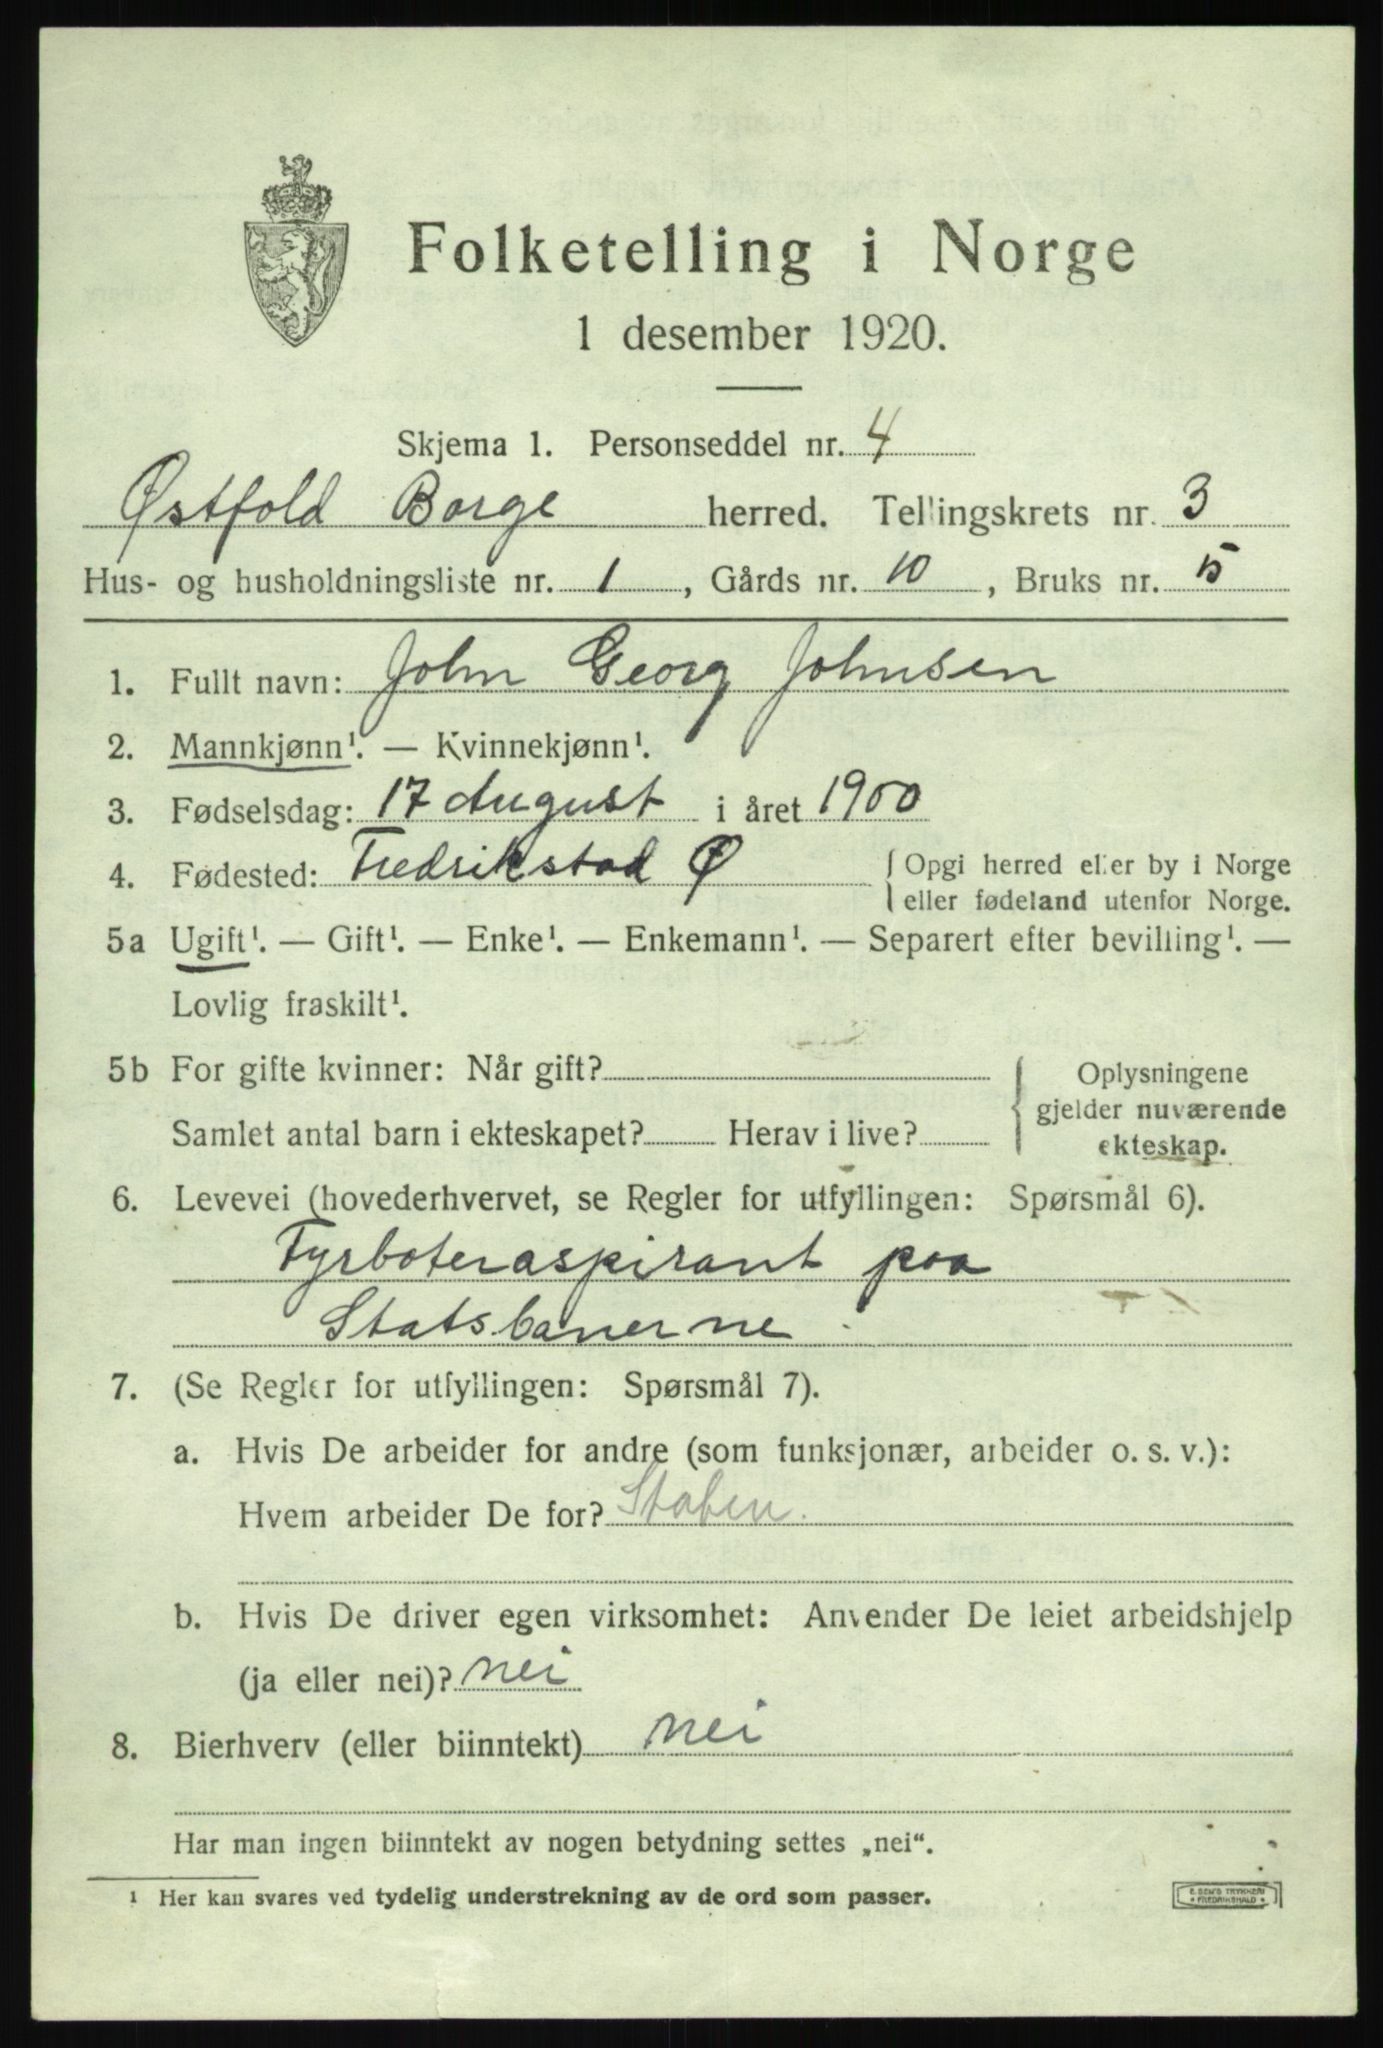 Folketelling i Norge
1 desember 1920.
Skjema 1. Personseddel nr. 4
Østfold Borge herred. Tellingskrets nr. 3
Hus- og husholdningsliste nr. 1, Gårds nr. 10, Bruks nr. 5
1. Fullt navn: John Georg Johnsen
2. Mannkjønn¹. — Kvinnekjønn¹.
3. Fødselsdag: 17 August i året 1900
4. Fødested: Fredrikstad Ø { Opgi herred eller by i Norge
eller fødeland utenfor Norge.
5a Ugift¹. — Gift¹. — Enke¹. — Enkemann¹. — Separert efter bevilling¹. —
Lovlig fraskilt¹.
5b For gifte kvinner: Når gift? { Oplysningene
gjelder nuværende
Samlet antal barn i ekteskapet? Herav i live?
ekteskap.
6. Levevei (hovederhvervet, se Regler for utfyllingen: Spørsmål 6).
Fyrboteraspirant paa
Statsbanerne
7. (Se Regler for utfyllingen: Spørsmål 7).
a. Hvis De arbeider for andre (som funksjonær, arbeider o. s. v.):
Hvem arbeider De for? Staten.
b. Hvis De driver egen virksomhet: Anvender De leiet arbeidshjelp
(ja eller nei)? nei
8. Bierhverv (eller biinntekt) nei
Har man ingen biinntekt av nogen betydning settes „nei“.
¹ Her kan svares ved tydelig understrekning av de ord som passer.
E. SEM'S TRYKKERI
• FREDRIKSHALD •